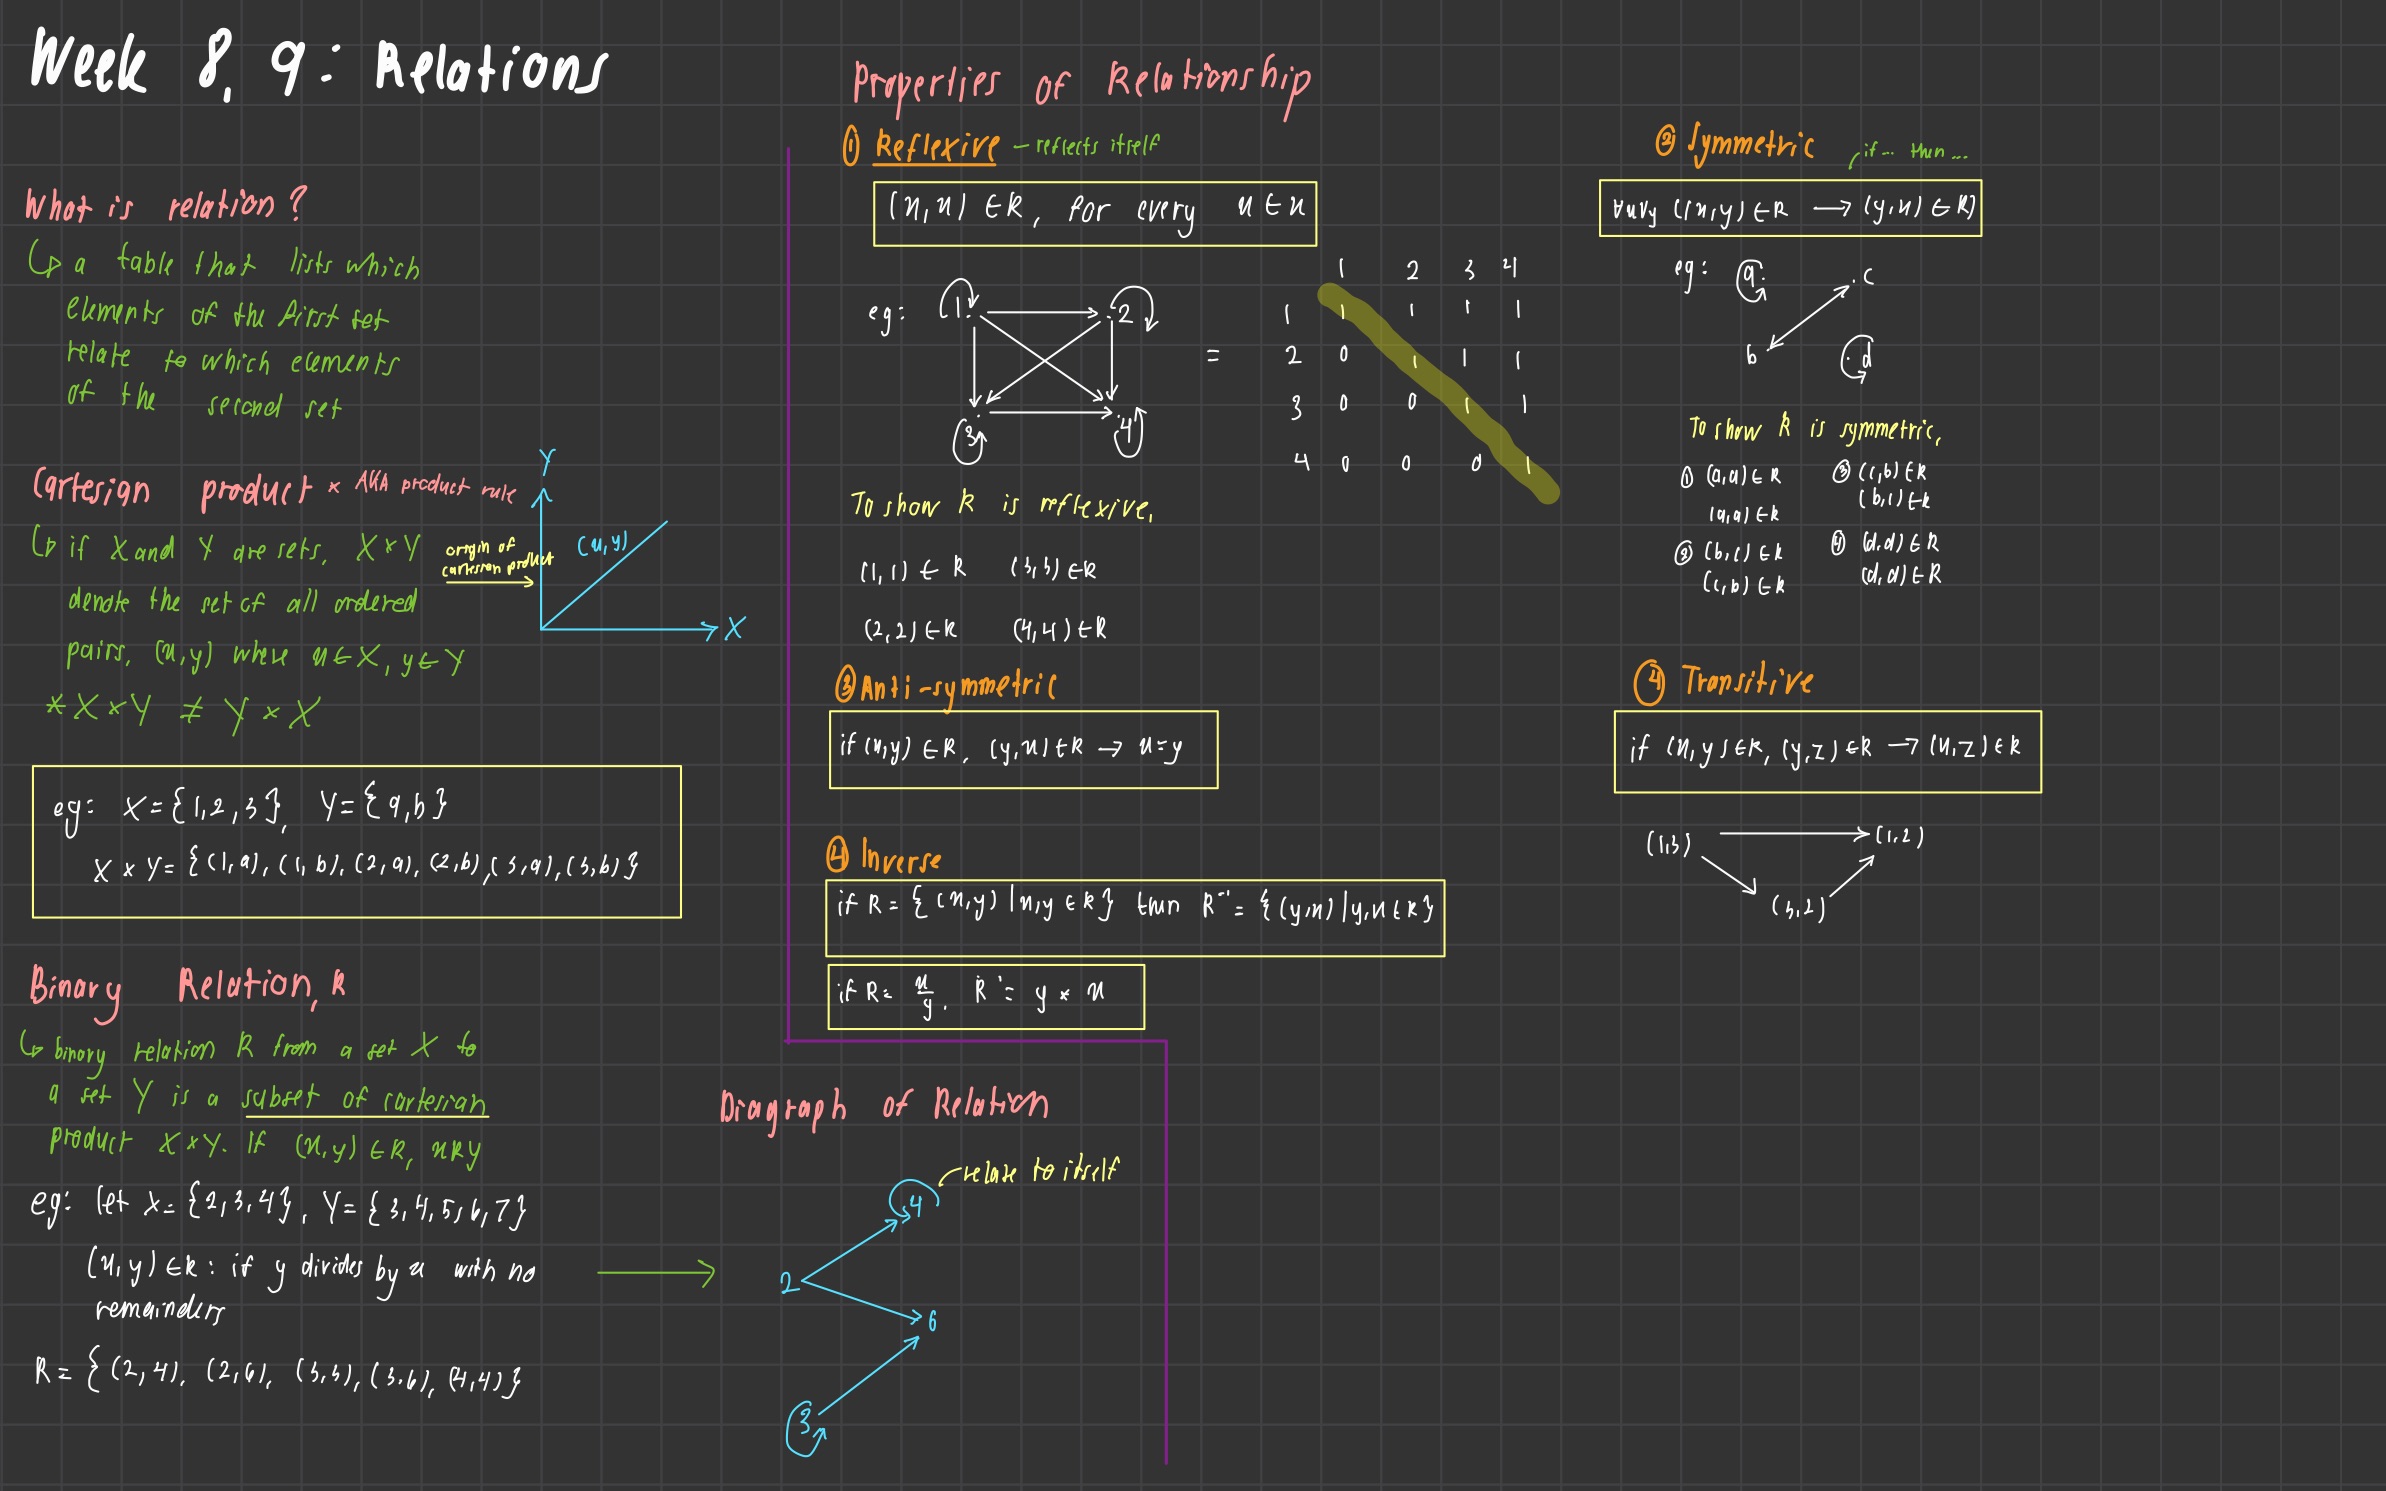 Week 8, 9: Relations
What is relation?
↳ a table that lists which
elements of the first set
relate to which elements
of the second set
Cartesian product * AKA product rule
↳ if X and Y are sets, X × Y
denote the set of all ordered
pairs, (x,y) where x ∈ X, y ∈ Y
* X × Y ≠ Y × X
origin of
cartesian product
Y
(x,y)
X
eg: X = {1,2,3}, Y = {a,b}
X × Y = {(1,a), (1,b), (2,a), (2,b), (3,a), (3,b)}
Binary Relation, R
↳ binary relation R from a set X to
a set Y is a subset of cartesian
product X × Y. If (x,y) ∈ R, xRy
eg: let X = {2,3,4}, Y = {3,4,5,6,7}
(x,y) ∈ R : if y divides by x with no
remainders
R = {(2,4), (2,6), (3,3), (3,6), (4,4)}
Properties of Relationship
① Reflexive – reflects itself
(x,x) ∈ R, for every x ∈ x
eg: 1 2
3 4
=
1 2 3 4
1 1 1 1 1
2 0 1 1 1
3 0 0 1 1
4 0 0 0 1
To show R is reflexive,
(1,1) ∈ R (3,3) ∈ R
(2,2) ∈ R (4,4) ∈ R
② Symmetric
if... then...
∀x∀y ((x,y) ∈ R → (y,x) ∈ R)
eg: a c
b d
To show R is symmetric,
① (a,a) ∈ R
(a,a) ∈ R
② (b,c) ∈ R
(c,b) ∈ R
③ (c,b) ∈ R
(b,c) ∈ R
④ (d,d) ∈ R
(d,d) ∈ R
③ Anti-symmetric
if (x,y) ∈ R, (y,x) ∈ R → x = y
④ Transitive
if (x,y) ∈ R, (y,z) ∈ R → (x,z) ∈ R
(1,3) (1,2)
(3,2)
④ Inverse
if R = {(x,y) | x,y ∈ R} then R⁻¹ = {(y,x) | y,x ∈ R}
if R = x/y, R⁻¹ = y × x
Diagraph of Relation
relate to itself
4
2
6
3